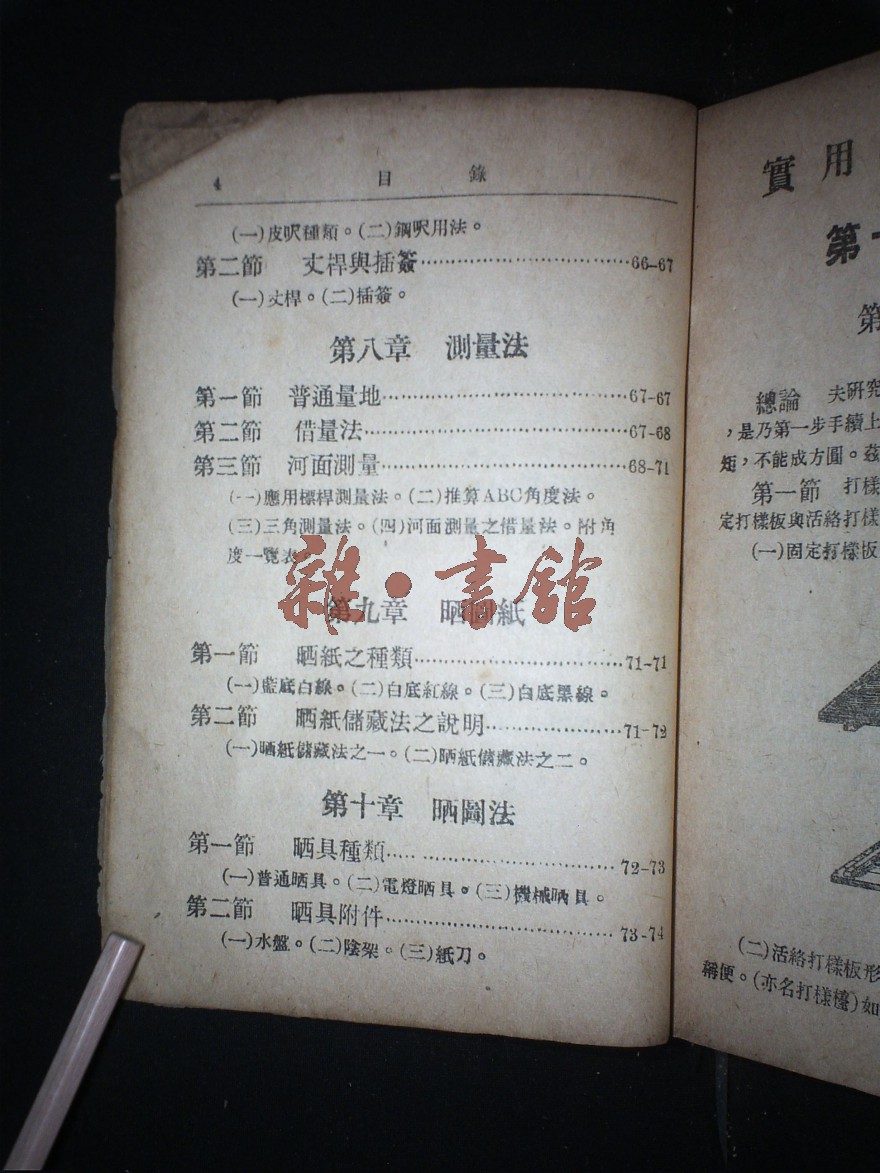 4 目錄
(一)皮呎種類。(二)鋼呎用法。
第二節 丈桿與插簽……66-67
(一)丈桿。(二)插簽。
第八章 測量法
第一節 普通量地……67-67
第二節 借量法……67-68
第三節 河面測量……68-71
(一)應用標桿測量法。(二)推算ABC角度法。
(三)三角測量法。(四)河面測量之借量法。附角
度一覽表。
雜·書館
第九章 晒圖紙
第一節 晒紙之種類……71-71
(一)藍底白線。(二)白底紅線。(三)白底黑線。
第二節 晒紙儲藏法之說明……71-72
(一)晒紙儲藏法之一。(二)晒紙儲藏法之二。
第十章 晒圖法
第一節 晒具種類……72-73
(一)普通晒具。(二)電燈晒具。(三)機械晒具。
第二節 晒具附件……73-74
(一)水盤。(二)陰架。(三)紙刀。
實用
第
第
總論 夫研究
,是乃第一步手續上
矩,不能成方圓。茲
第一節 打樣
定打樣板與活絡打樣
(一)固定打樣板
(二)活絡打樣板形
稱便。(亦名打樣檯)如